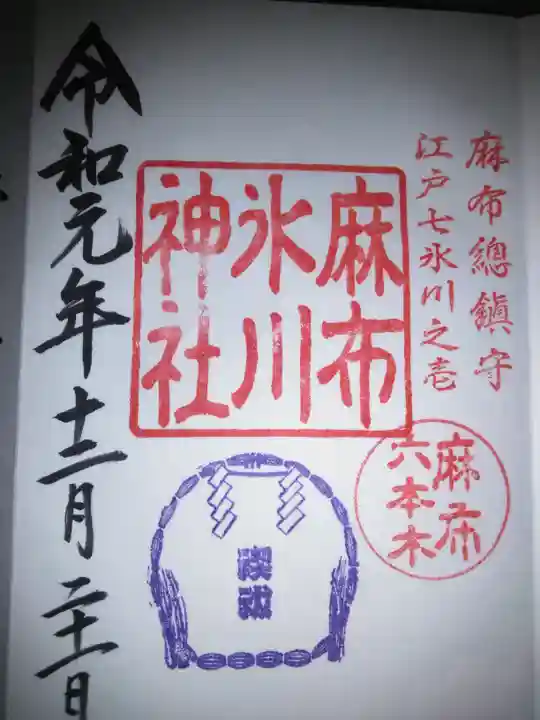 麻布總鎮守
江戸七氷川之壱
麻布
氷川
神社
麻布
六本木
禊祓
令和元年十二月二十一日